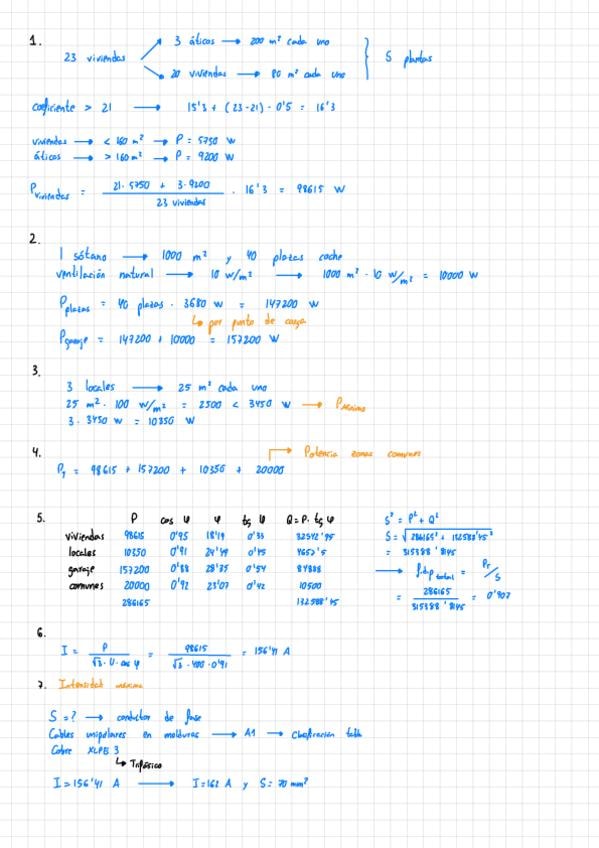 1.
3 áticos → 200 m² cada uno
23 viviendas
5 plantas
20 viviendas → 80 m² cada uno
coeficiente > 21 → 15'3 + (23-21) · 0'5 = 16'3
viviendas → < 160 m² → P = 5750 W
áticos → > 160 m² → P = 9200 W
P viviendas = (21 · 5750 + 3 · 9200) / 23 viviendas · 16'3 = 98615 W
2.
1 sótano → 1000 m² y 40 plazas coche
ventilación natural → 10 W/m² → 1000 m² · 10 W/m² = 10000 W
P plazas = 40 plazas · 3680 W = 147200 W
↳ por punto de carga
P garaje = 147200 + 10000 = 157200 W
3.
3 locales → 25 m² cada uno
25 m² · 100 W/m² = 2500 < 3450 W → P mínima
3 · 3450 W = 10350 W
4.
Potencia zonas comunes
P_T = 98615 + 157200 + 10350 + 20000
5.
P cos φ φ tg φ Q = P · tg φ
viviendas 98615 0'95 18'19 0'33 32542'95
locales 10350 0'91 24'49 0'45 4657'5
garaje 157200 0'88 28'35 0'54 84888
comunes 20000 0'92 23'07 0'42 10500
286165 132588'45
S² = P² + Q²
S = √(286165² + 132588'45²)
= 315388'8145
→ f.d.p total = P_T / S
= 286165 / 315388'8145 = 0'907
6.
I = P / (√3 · U · cos φ) = 98615 / (√3 · 400 · 0'91) = 156'41 A
7. Intensidad máxima
S = ? → conductor de fase
Cables unipolares en molduras → A1 → Clasificación tabla
Cobre XLPE 3
↳ Trifásico
I = 156'41 A → I = 162 A y S = 70 mm²